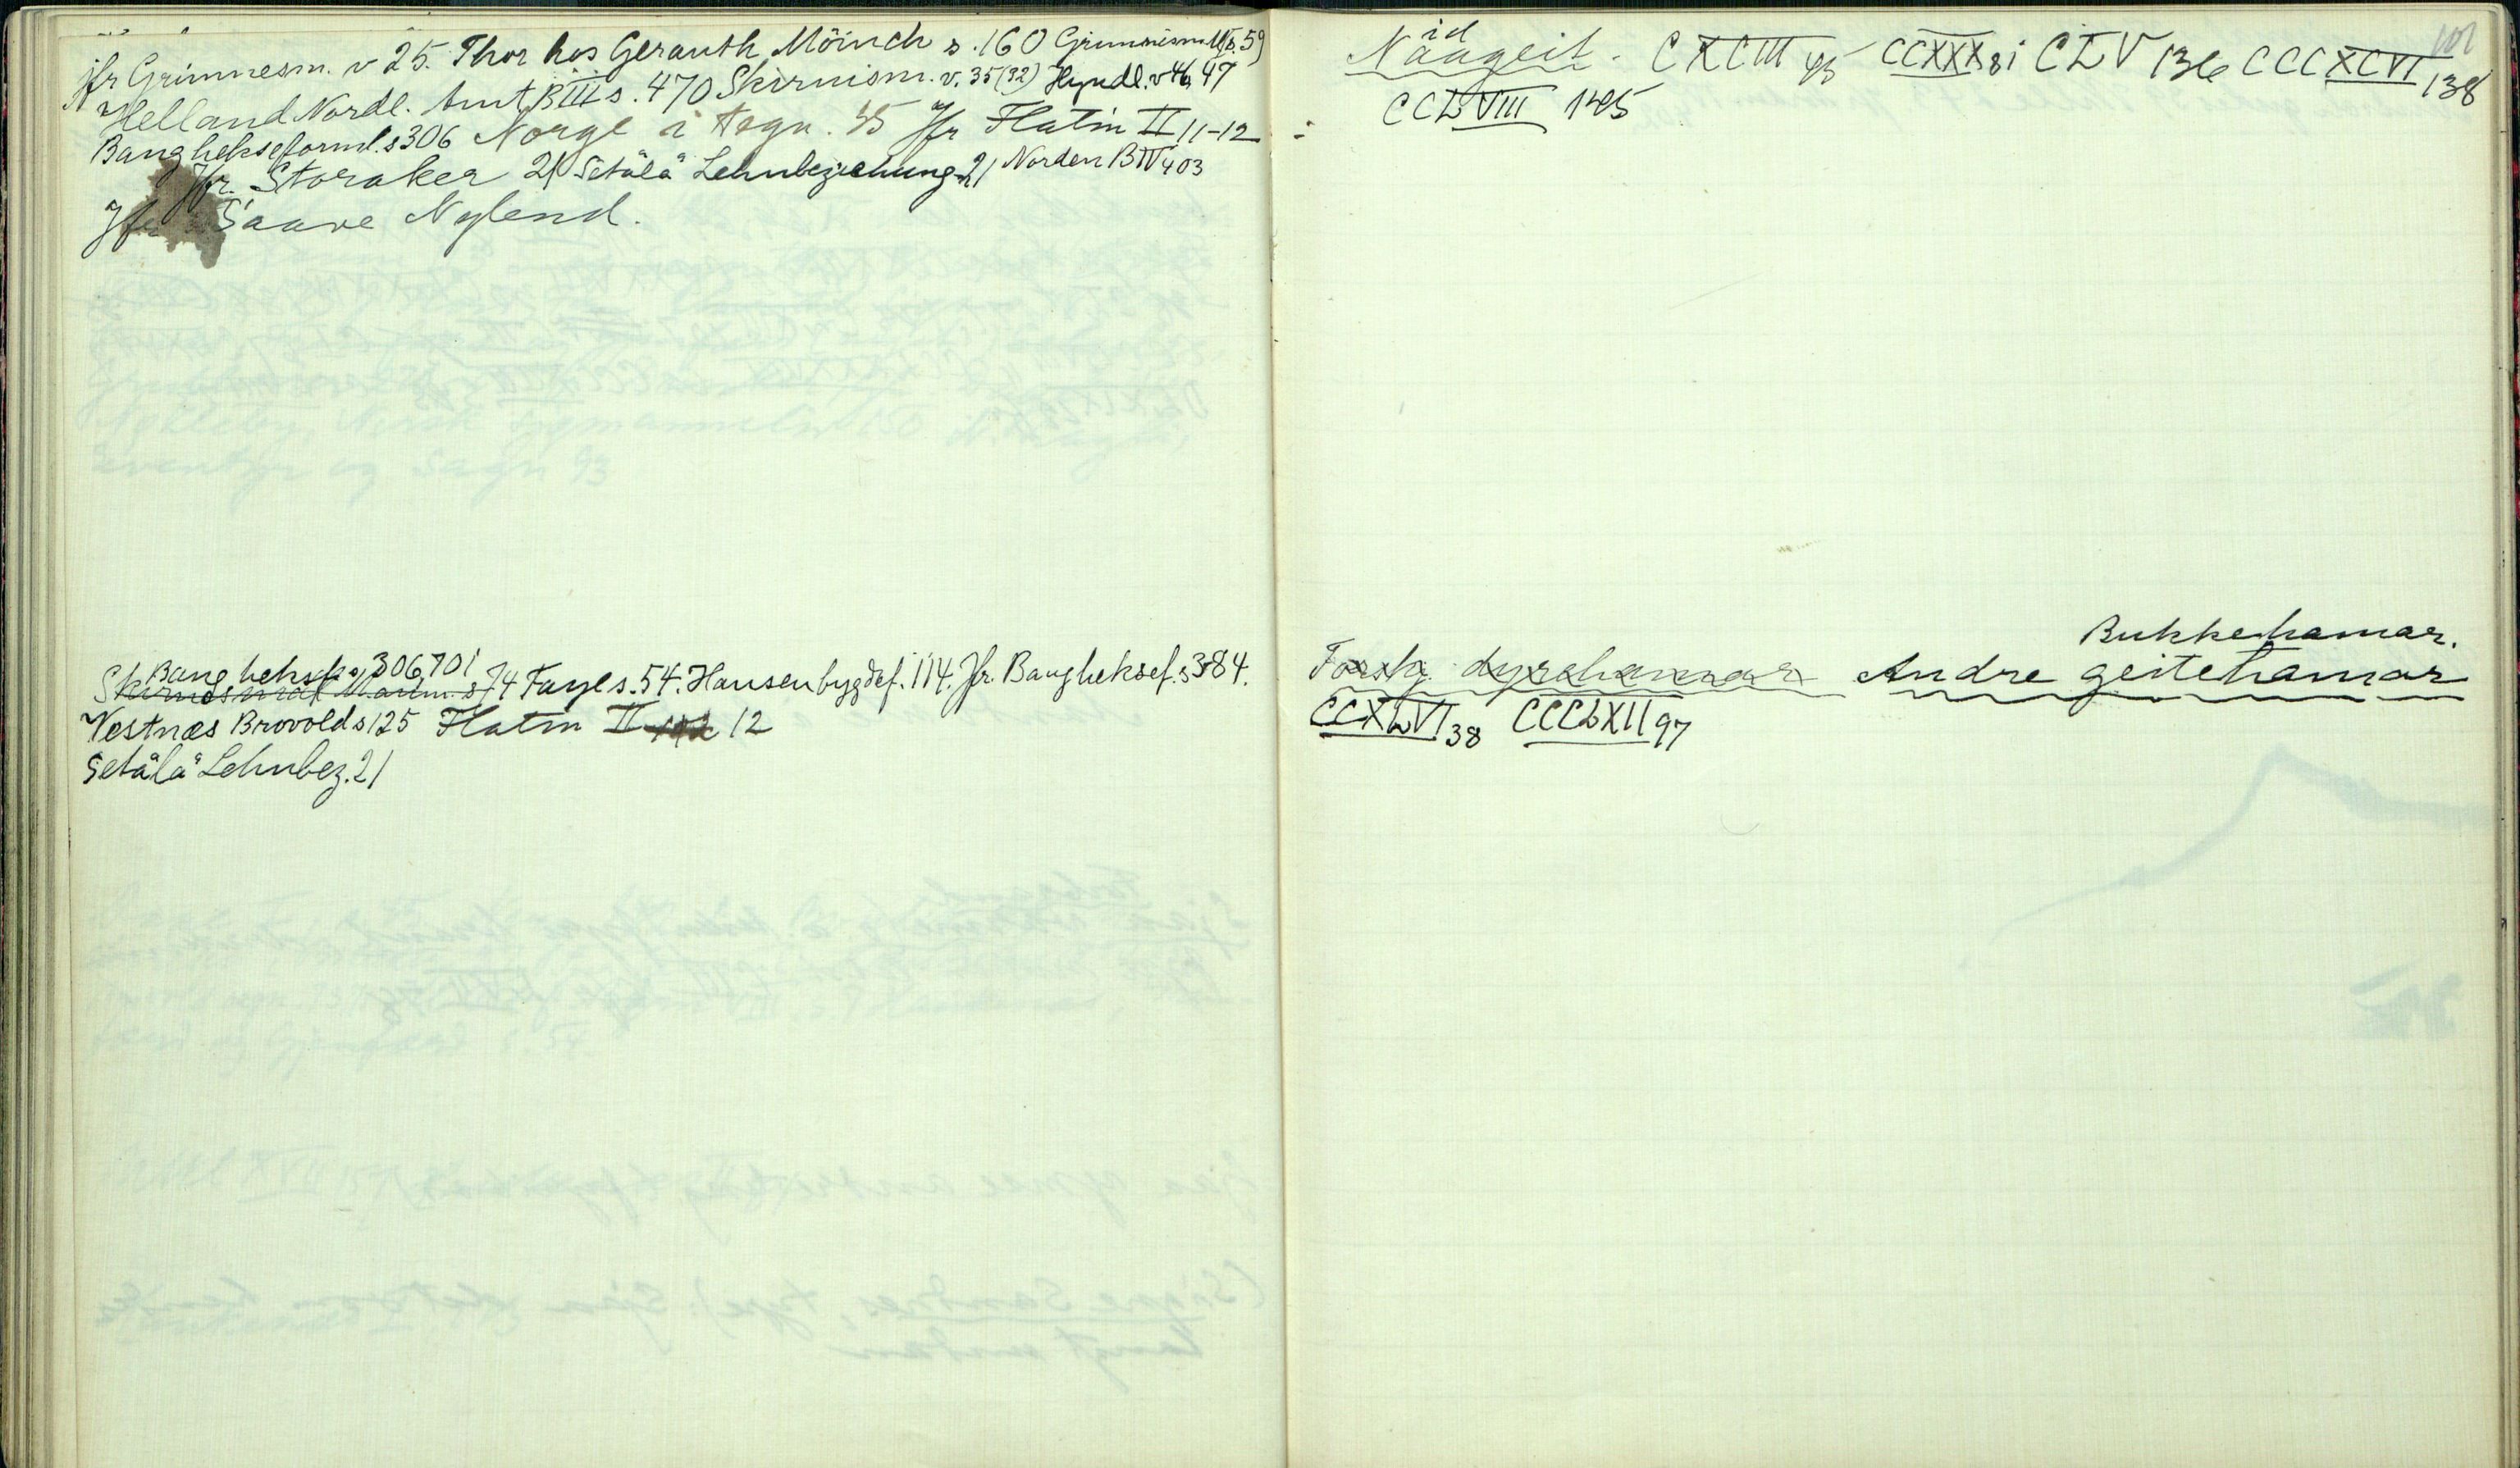 jfr Grimnesm. v 25. Thor hos Gerauth Möinch s. 160 Grimnism. s. 59
Helland Nordl. Amt B III s. 470 Skirnism. v. 35 (32) Hyndl. v 46, 47
Bang hekseforml. s 306 Norge i tegn. 45 Jfr Flatin II 11-12
Jfr. Storaker 21 Setälä Lehnbeziehung 21 Norden B IV 403
Jfr Saave Nylend.
Bang heksef. s 306, 701
Skirnesmaal s 74 Faye s. 54. Hansen bygdef. 114. Jfr. Bang heksef. s 384.
Vestnæs Brovold s 125 Flatin II 12
Setälä Lehnbez. 21
101
id
Naageit. CXCIII 45 CCXXX 81 CLV 136 CCCXCVI 138
CCLVIII 1405
Bukkehamar.
Forsk. dyrehamar Andre geitehamar
CCXLVI 38 CCCLXII 97